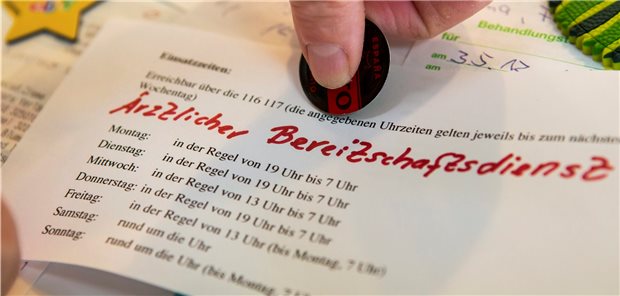 für
am 3.5.12
am
ESPAÑA
Einsatzzeiten:
Erreichbar über die 116 117 (die angegebenen Uhrzeiten gelten jeweils bis zum
Wochentag)
Ärztlicher Bereitschaftsdienst
Montag: in der Regel von 19 Uhr bis 7 Uhr
Dienstag: in der Regel von 19 Uhr bis 7 Uhr
Mittwoch: in der Regel von 13 Uhr bis 7 Uhr
Donnerstag: in der Regel von 19 Uhr bis 7 Uhr
Freitag: in der Regel von 13 Uhr (bis Montag, 7 Uhr)
Samstag: rund um die Uhr
Sonntag: rund um die Uhr (bis Montag, 7 Uhr)